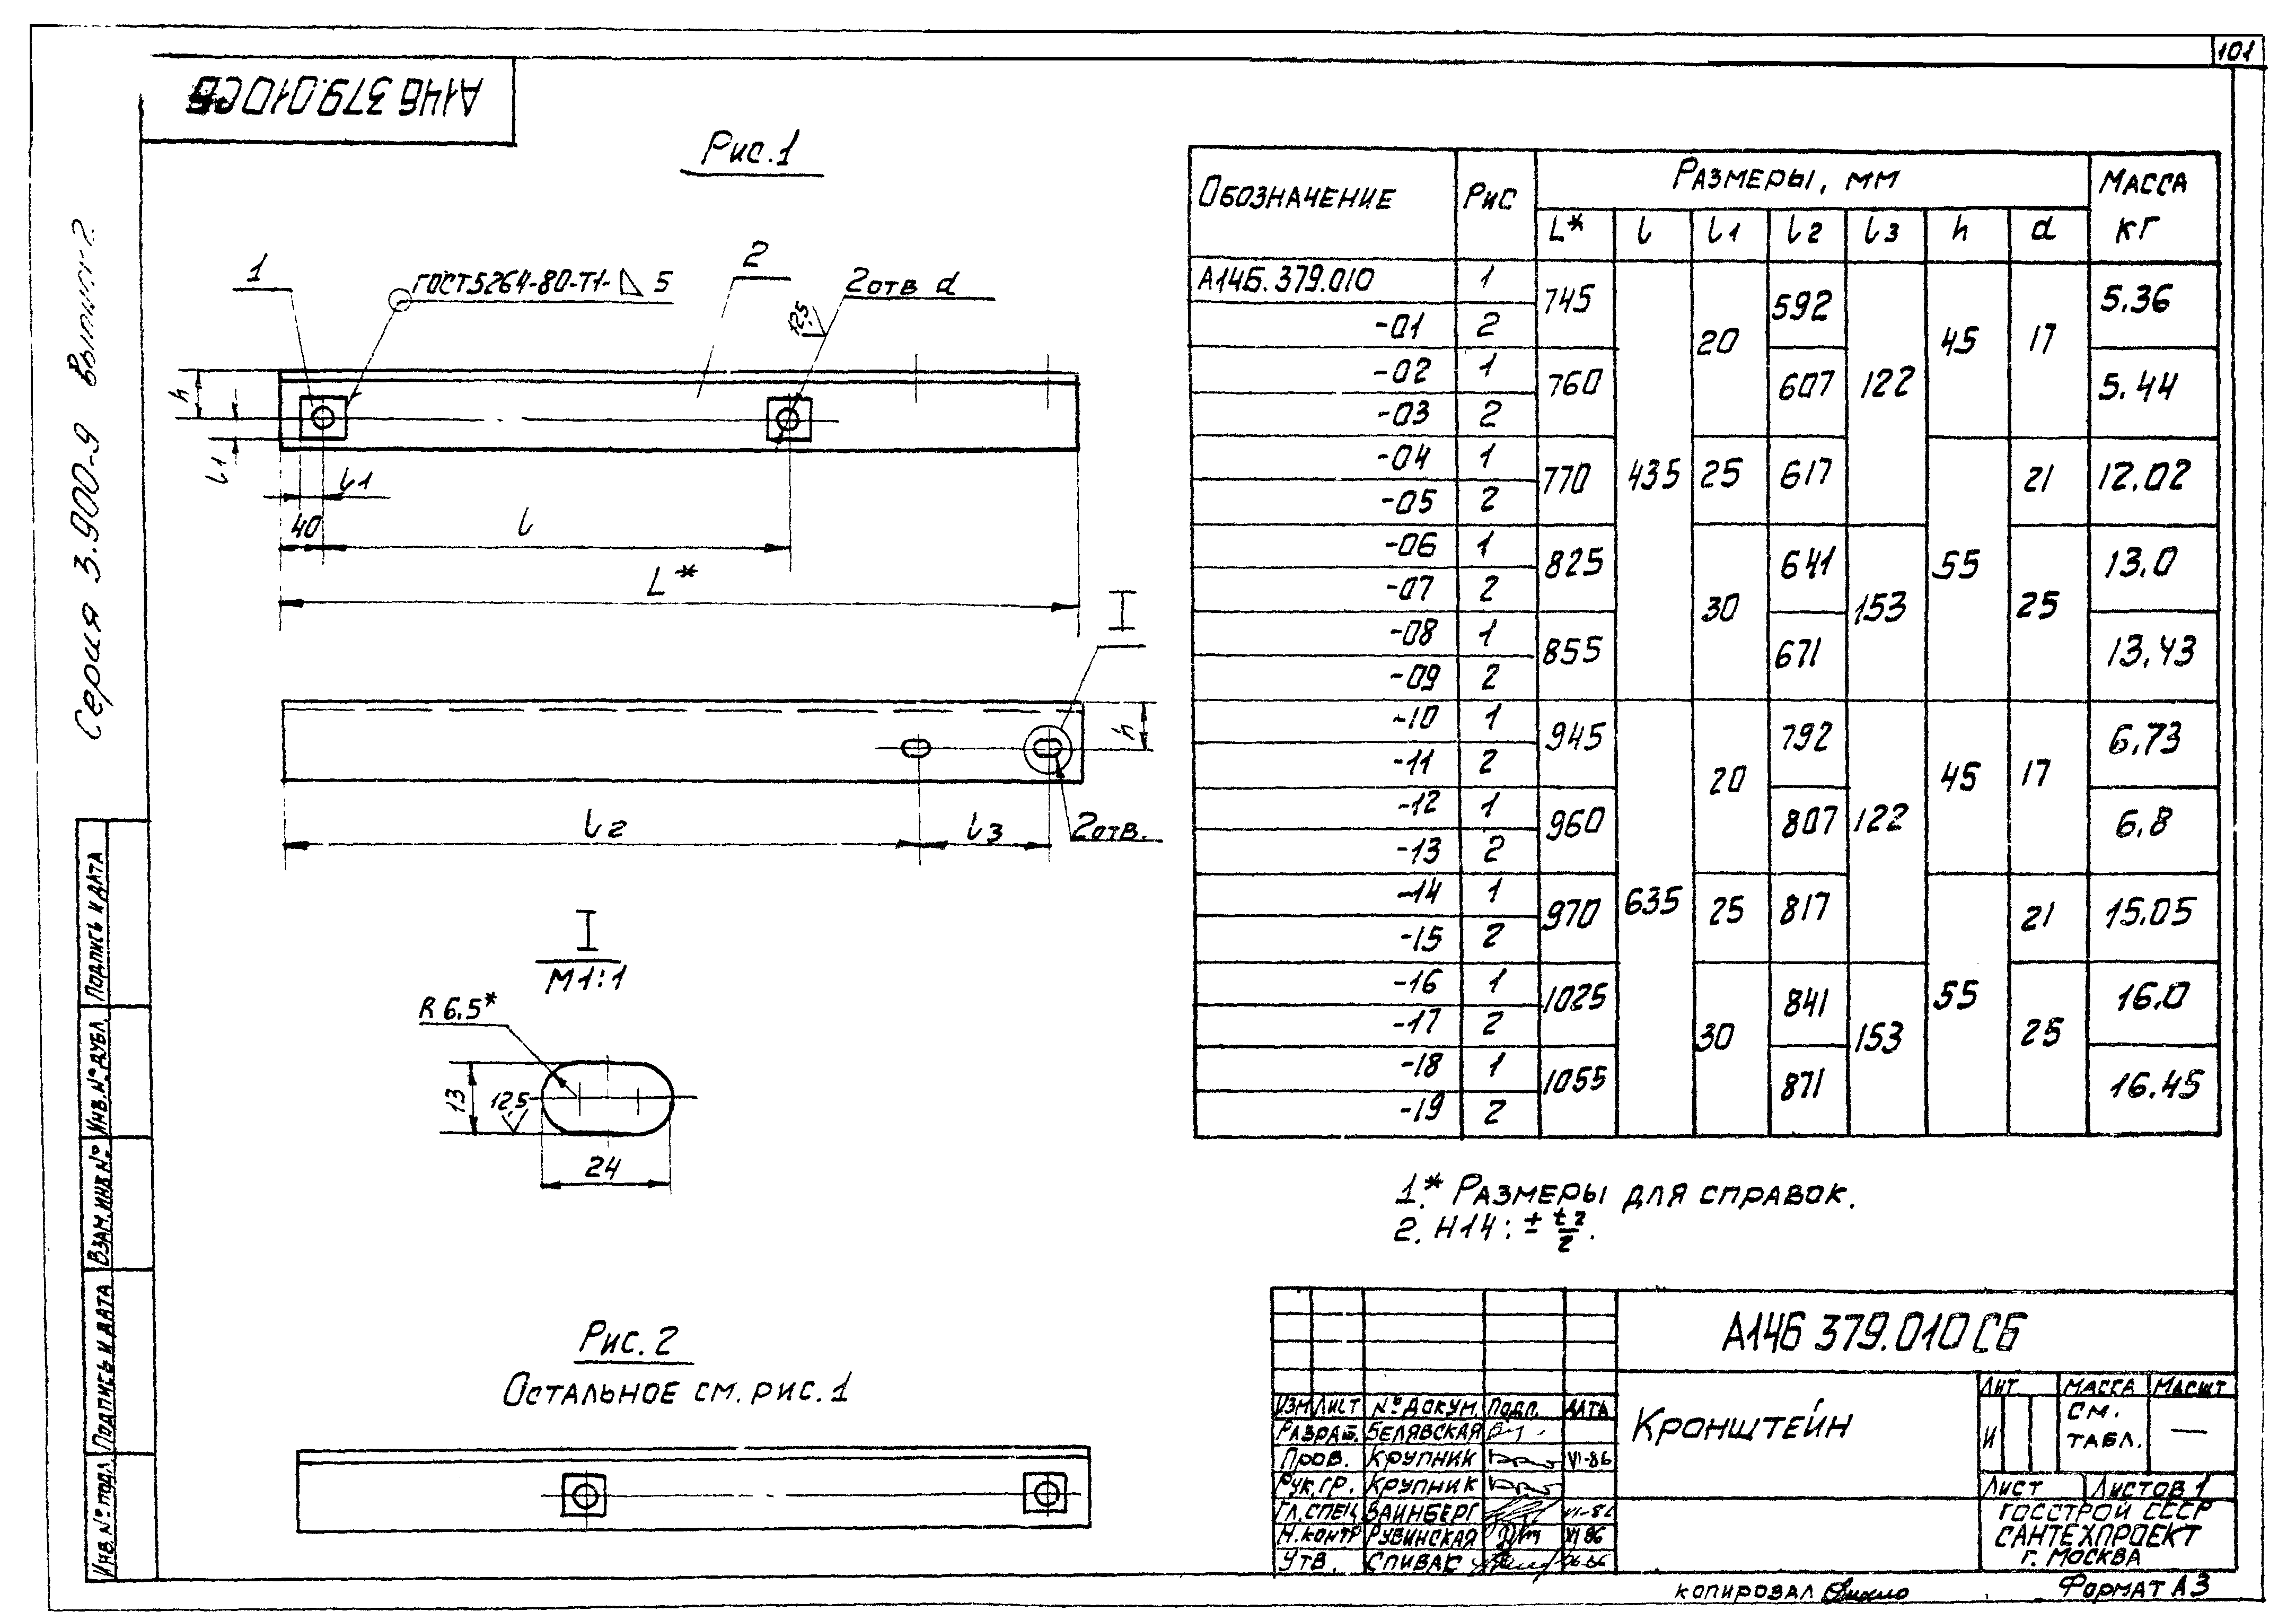 101
А14Б 379.010СБ
Серия 3.900-9 Выпуск 2
Рис.1
1
ГОСТ5264-80-Т1-◺5
2
2отв d
12,5
h
l1
l1
40
l
L*
I
h
l2
l3
2отв.
I
М1:1
R 6.5*
13
12,5
24
Рис. 2
Остальное см. рис. 1
Обозначение Рис Размеры, мм Масса кг
L* l l1 l2 l3 h d
А14Б.379.010 1 745 435 20 592 122 45 17 5.36
-01 2
-02 1 760 607 5.44
-03 2
-04 1 770 25 617 55 21 12.02
-05 2
-06 1 825 30 641 153 25 13.0
-07 2
-08 1 855 671 13.43
-09 2
-10 1 945 635 20 792 122 45 17 6.73
-11 2
-12 1 960 807 6.8
-13 2
-14 1 970 25 817 55 21 15.05
-15 2
-16 1 1025 30 841 153 25 16.0
-17 2
-18 1 1055 871 16.45
-19 2
1.* Размеры для справок.
2. H14; ± t2/2.
А14Б 379.010СБ
Кронштейн
Лит Масса Масшт
И см. табл. —
Лист Листов 1
Госстрой СССР
Сантехпроект
г. Москва
Изм Лист № докум. Подп. Дата
Разраб. Белявская
Пров. Крупник VI-86
Рук.гр. Крупник
Гл.спец Вайнберг
Н.контр Рувинская VI 86
Утв. Спивак
Копировал
Формат А3
Подпись и дата
Инв. № дубл.
Взам. инв №
Подпись и дата
Инв. № подл.